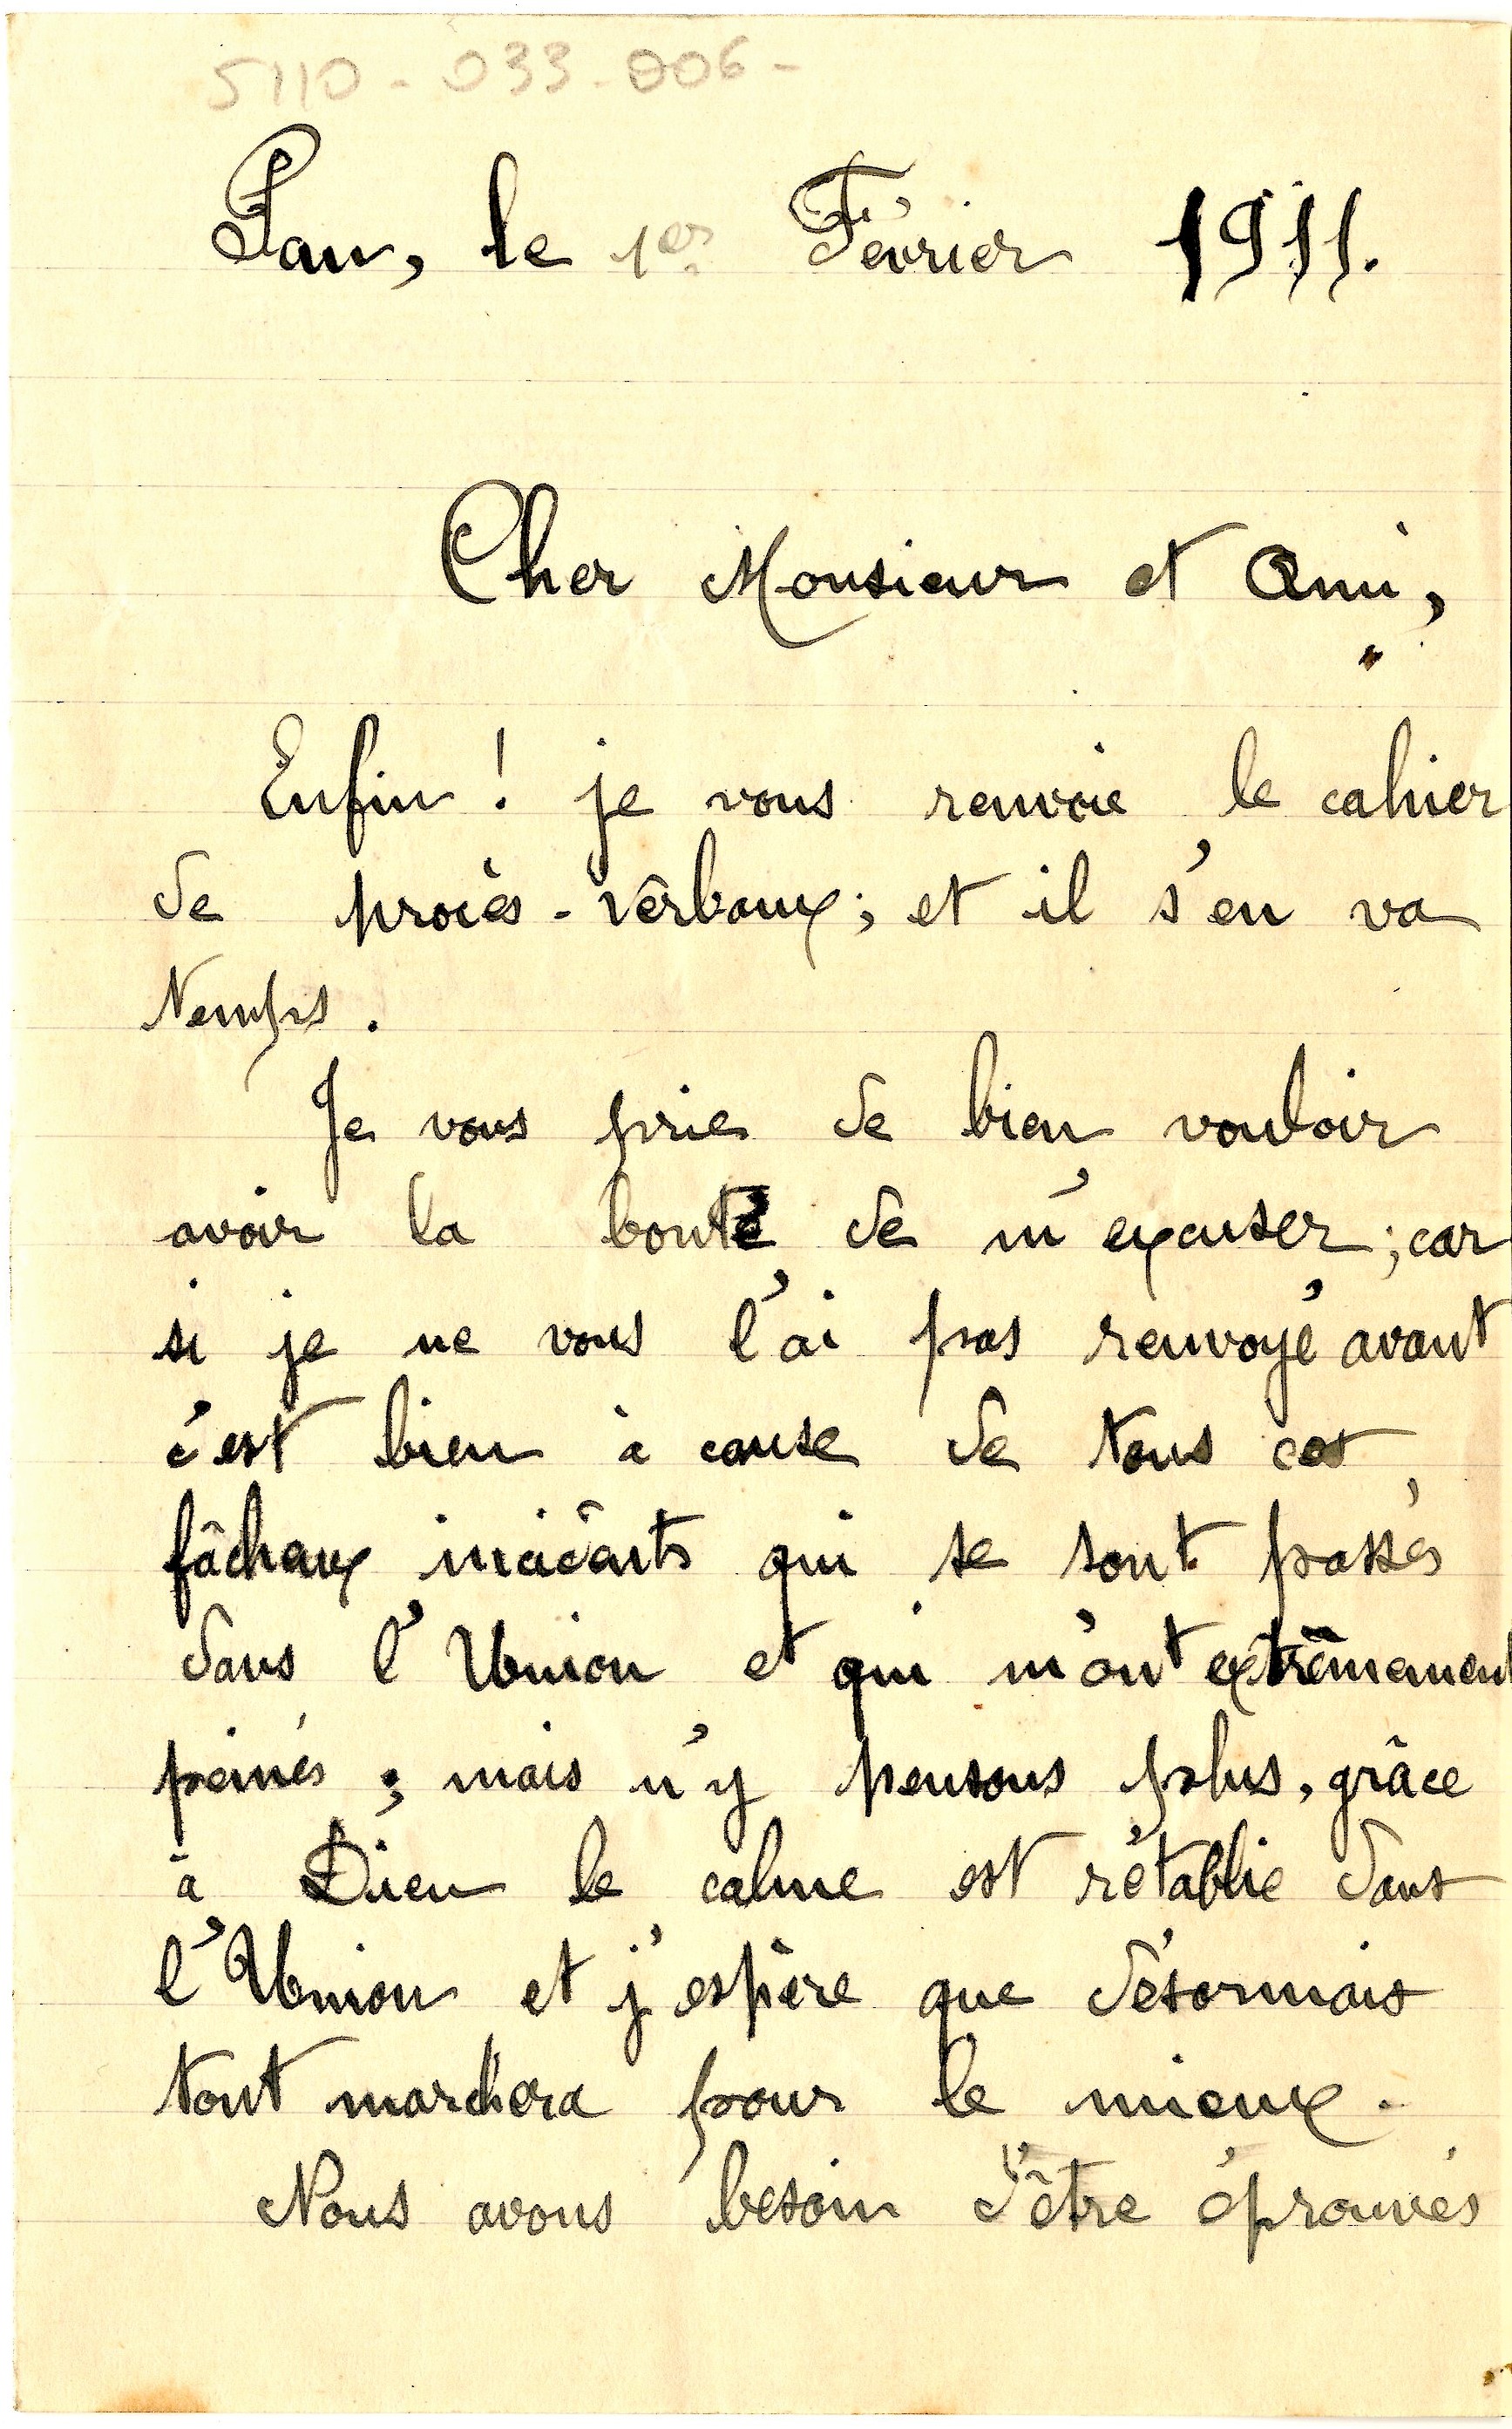 5110-033-006-
Pau, le 1er Février 1911.
Cher Monsieur et Ami,
Enfin ! je vous renvoie le cahier
de procès-verbaux ; et il s'en va
temps.
Je vous prie de bien vouloir
avoir la bonté de m'excuser ; car
si je ne vous l'ai pas renvoyé avant
c'est bien à cause de tous ces
fâcheux incidents qui se sont passés
dans l'Union et qui m'ont extrêmement
peinés ; mais n'y pensons plus, grâce
à Dieu le calme est rétablie dans
l'Union et j'espère que désormais
tout marchera pour le mieux.
Nous avons besoin d'être éprouvés